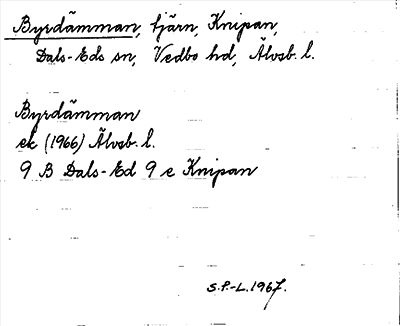 Byrdämman, tjärn, Knipan,
Dals-Eds sn, Vedbo hd, Älvsb. l.
Byrdämman
ek (1966) Älvsb. l.
9 B Dals-Ed 9 e Knipan
S.P.-L. 1967.